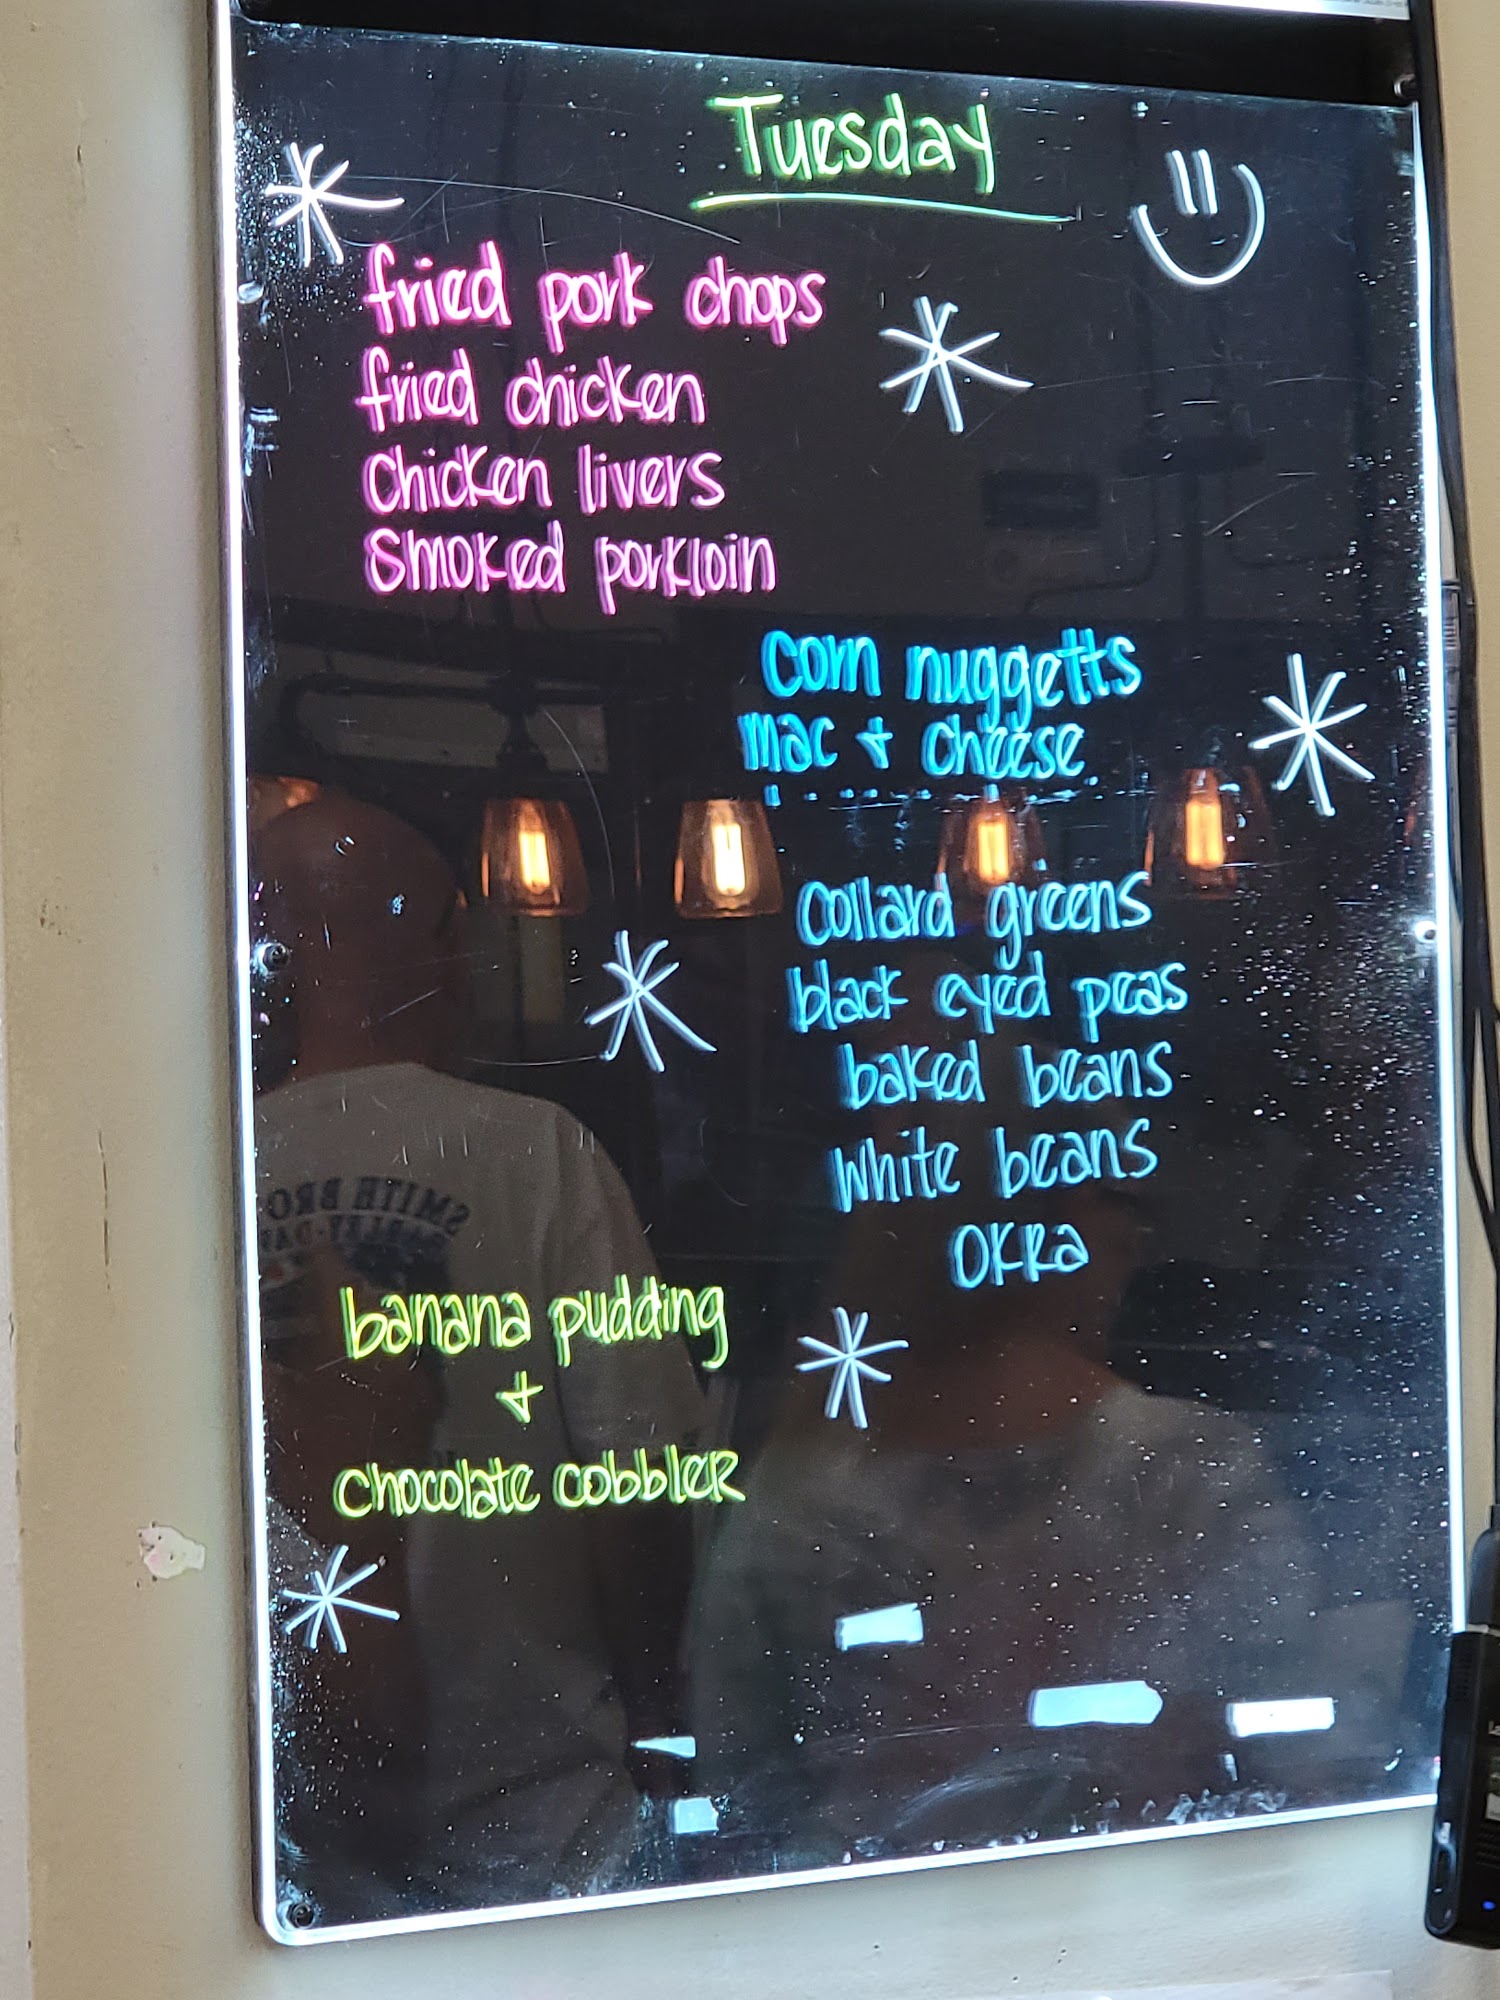 Tuesday
fried pork chops
fried chicken
Chicken livers
Smoked porkloin
Corn nuggetts
mac + cheese
Collard greens
black eyed peas
baked beans
white beans
OKRa
banana pudding
+
chocolate cobbleR
SMITH BRO